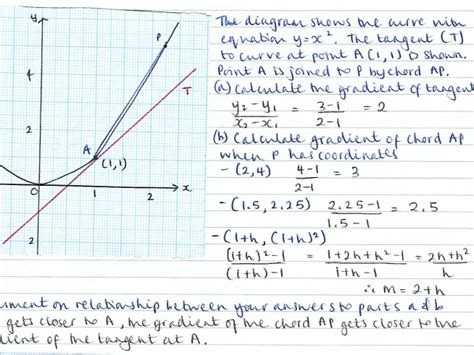 The diagram shows the curve with
equation y=x². The tangent (T)
to curve at point A(1,1) is shown.
Point A is joined to P by chord AP.
(a) Calculate the gradient of tangent
y₂-y₁ / x₂-x₁ = 3-1 / 2-1 = 2
(b) Calculate gradient of chord AP
when P has coordinates
- (2,4) 4-1 / 2-1 = 3
- (1.5, 2.25) 2.25-1 / 1.5-1 = 2.5
- (1+h, (1+h)²)
(1+h)²-1 / (1+h)-1 = 1+2h+h²-1 / 1+h-1 = 2h+h² / h
∴ m = 2+h
mment on relationship between your answers to parts a & b
gets closer to A, the gradient of the chord AP gets closer to the
dient of the tangent at A.
y
P
4
T
2
A
(1,1)
0
1
2
x
2